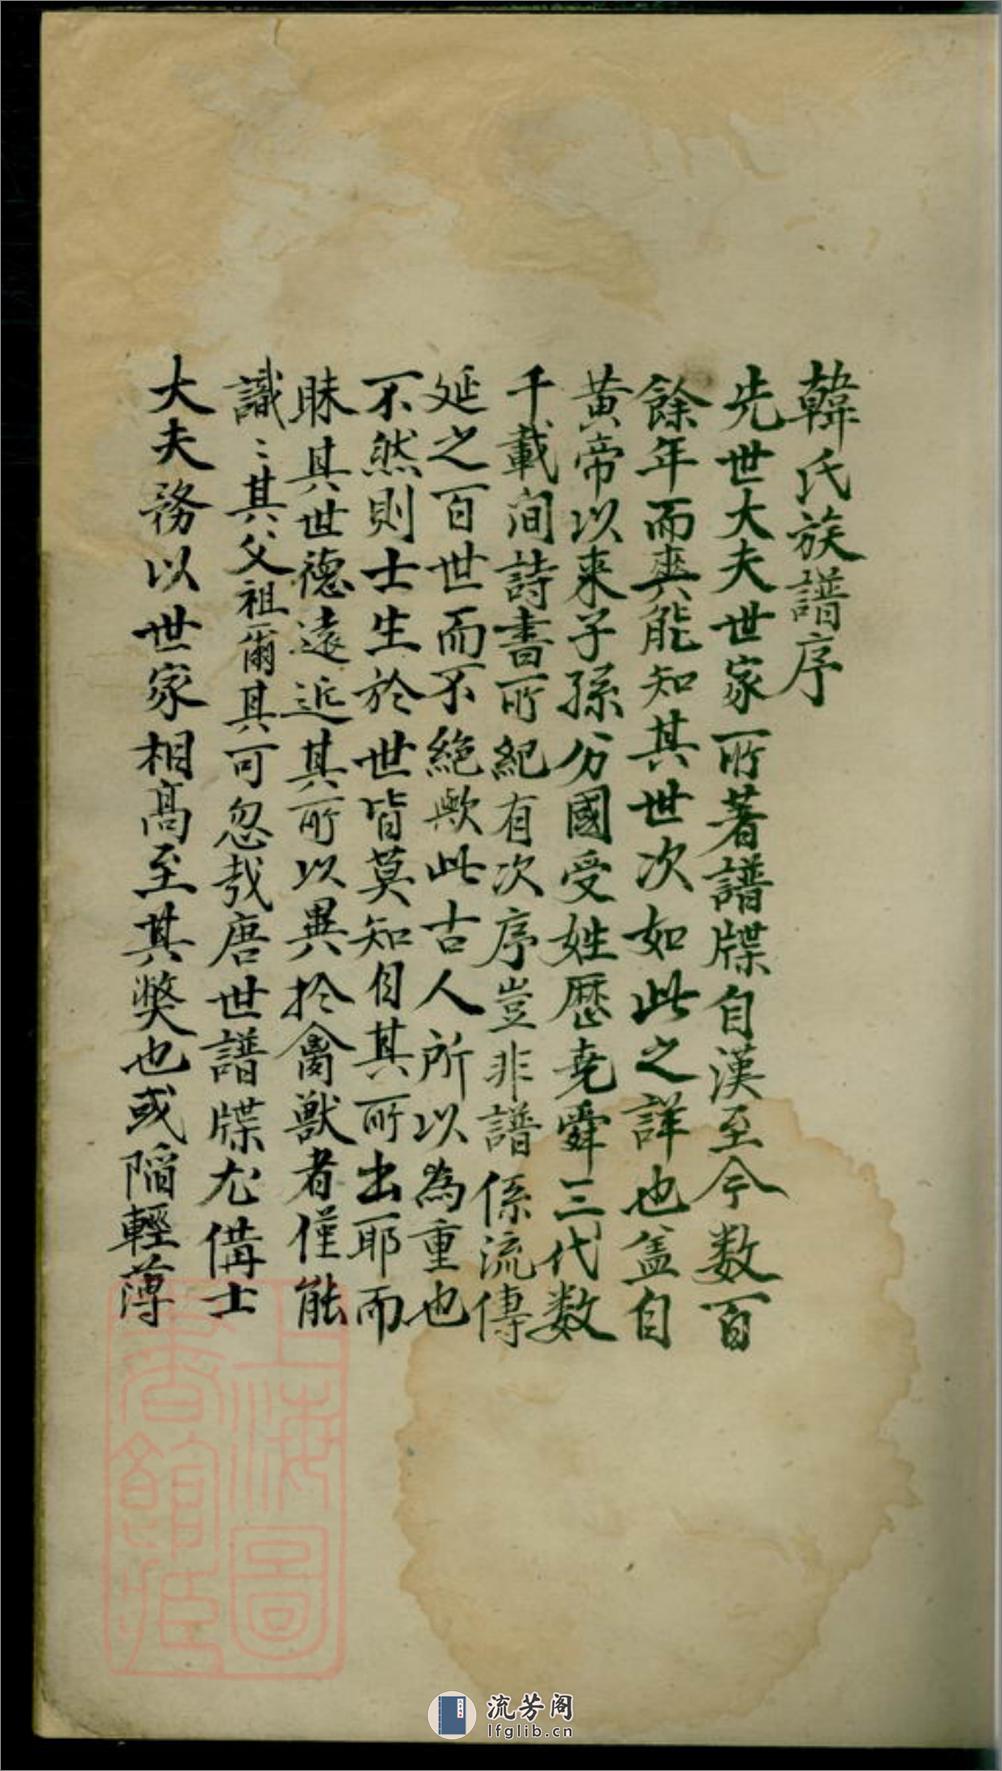 韓氏族譜序
先世大夫世家所著譜牒自漢至今数百
餘年而興能知其世次如此之詳也盖自
黃帝以来子孫分國受姓歷尭舜三代数
千載间詩書所紀有次序豈非譜係流傳
延之百世而不絕歟此古人所以為重也
不然則士生於世皆莫知自其所出耶而
昧其世德遠近其所以異扵禽獸者僅能
識〻其父祖爾其可忽哉唐世譜牒尤偹士
大夫務以世家相髙至其獘也或䧟輕薄
上海圖
書館藏
流芳阁
lfglib.cn